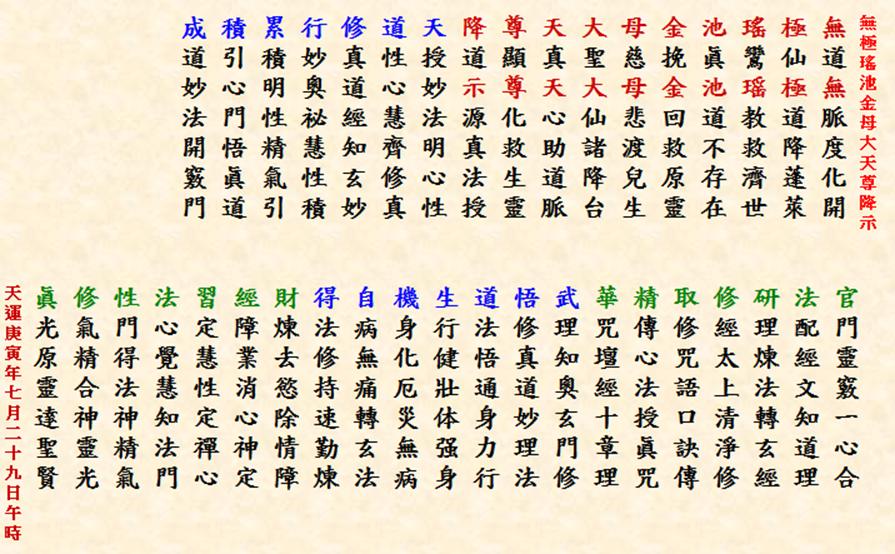 無極瑤池金母大天尊降示
無道無脈度化開
極仙極道降蓬萊
瑤鸞瑶教救濟世
池眞池道不存在
金挽金回救原靈
母慈母悲渡兒生
大聖大仙諸降台
天真天心助道脈
尊顯尊化救生靈
降道示源真法授
天授妙法明心性
道性心慧齊修真
修真道經知玄妙
行妙奧祕慧性積
累積明性精氣引
積引心門悟眞道
成道妙法開竅門
官門靈竅一心合
法配經文知道理
研理煉法轉玄經
修經太上清淨修
取修咒語口訣傳
精傳心法授眞咒
華咒壇經十章理
武理知奧玄門修
悟修真道妙理法
道法悟通身力行
生行健壯体强身
機身化厄災無病
自病無痛轉玄法
得法修持速勤煉
財煉去慾除情障
經障業消心神定
習定慧性定禪心
法心覺慧知法門
性門得法神精氣
修氣精合神靈光
眞光原靈達聖賢
天運庚寅年七月二十九日午時